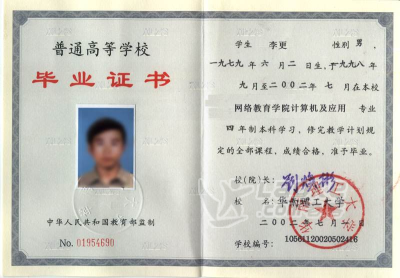 普通高等学校
毕业证书
中华人民共和国教育部监制
No. 01954690
学生 李更 性别 男，
一九七九年 六月 二日生，于一九九八年
九月至二00二年 七月在本校
网络教育学院计算机及应用 专业
四年制本科学习，修完教学计划规
定的全部课程，成绩合格，准予毕业。
校(院)长：
校 名：华南理工大学
二00二年七月一日
学校编号：10561120020502416